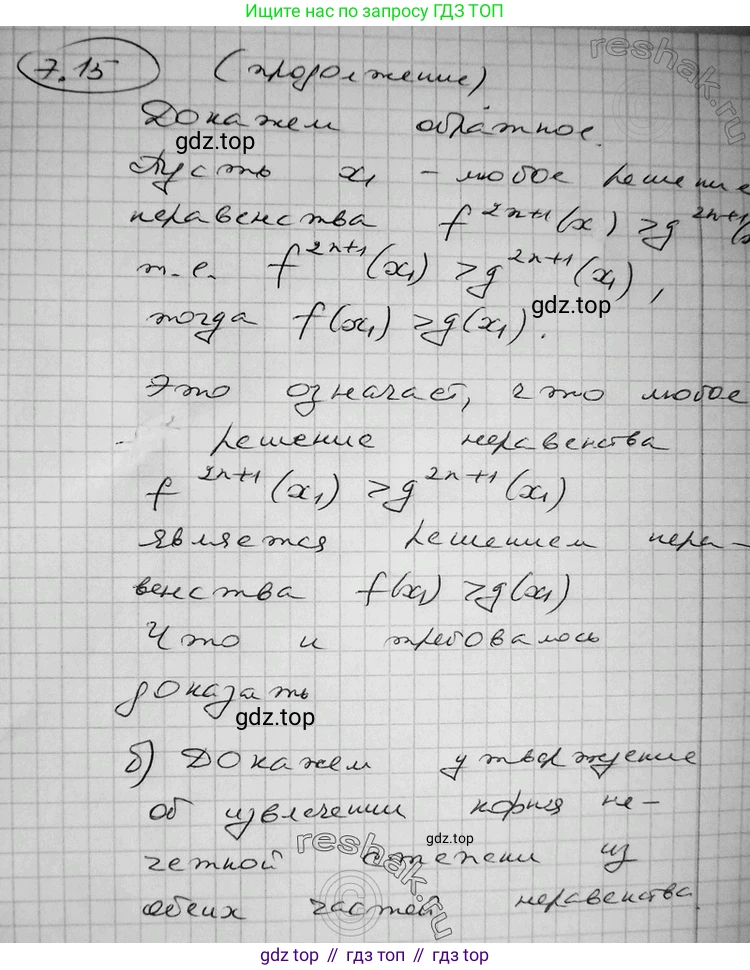 Ищите нас по запросу ГДЗ ТОП
reshak.ru
7.15 (продолжение)
Докажем обратное.
gdz.top
Пусть x₁ - любое решение
неравенства f²ⁿ⁺¹(x) > g²ⁿ⁺¹(x
т.е. f²ⁿ⁺¹(x₁) > g²ⁿ⁺¹(x₁),
gdz.top
тогда f(x₁) > g(x₁).
Это означает, что любое
решение неравенства
f²ⁿ⁺¹(x₁) > g²ⁿ⁺¹(x₁)
является решением нера-
венства f(x₁) > g(x₁)
Что и требовалось
доказать
gdz.top
б) Докажем утверждение
об извлечении корня не-
gdz.top
четной степени из
reshak.ru
обеих частей неравенства.
gdz.top // gdz.top // gdz.top // gdz.top